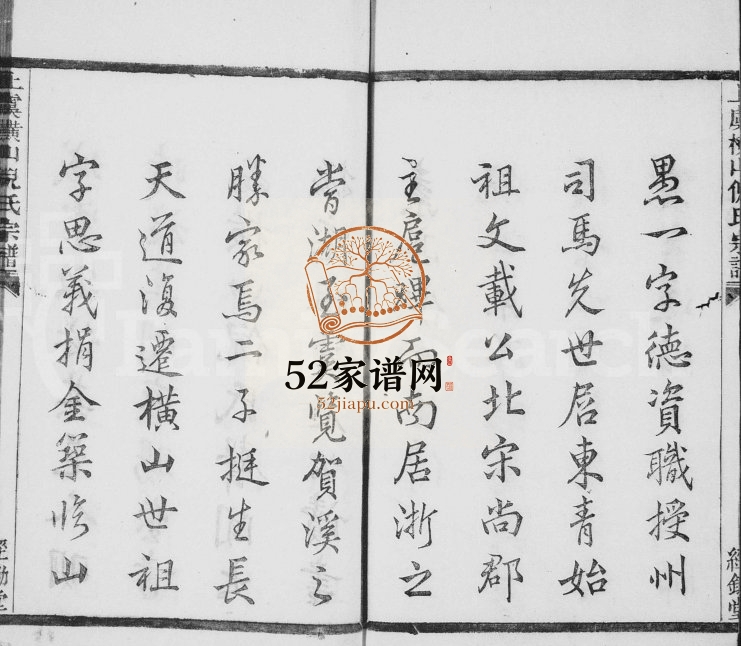 愚一字德資職授州
司馬先世居東青始
祖文載公北宋尚郡
主扈蹕而南居浙之
當湖至雲覽賀溪之
勝家焉二子挺生長
天道復遷橫山世祖
字思義捐金築臨山
上虞橫山倪氏宗譜
經鋤堂
上虞橫山倪氏宗譜
經鋤堂
52家谱网
52jiapu.com